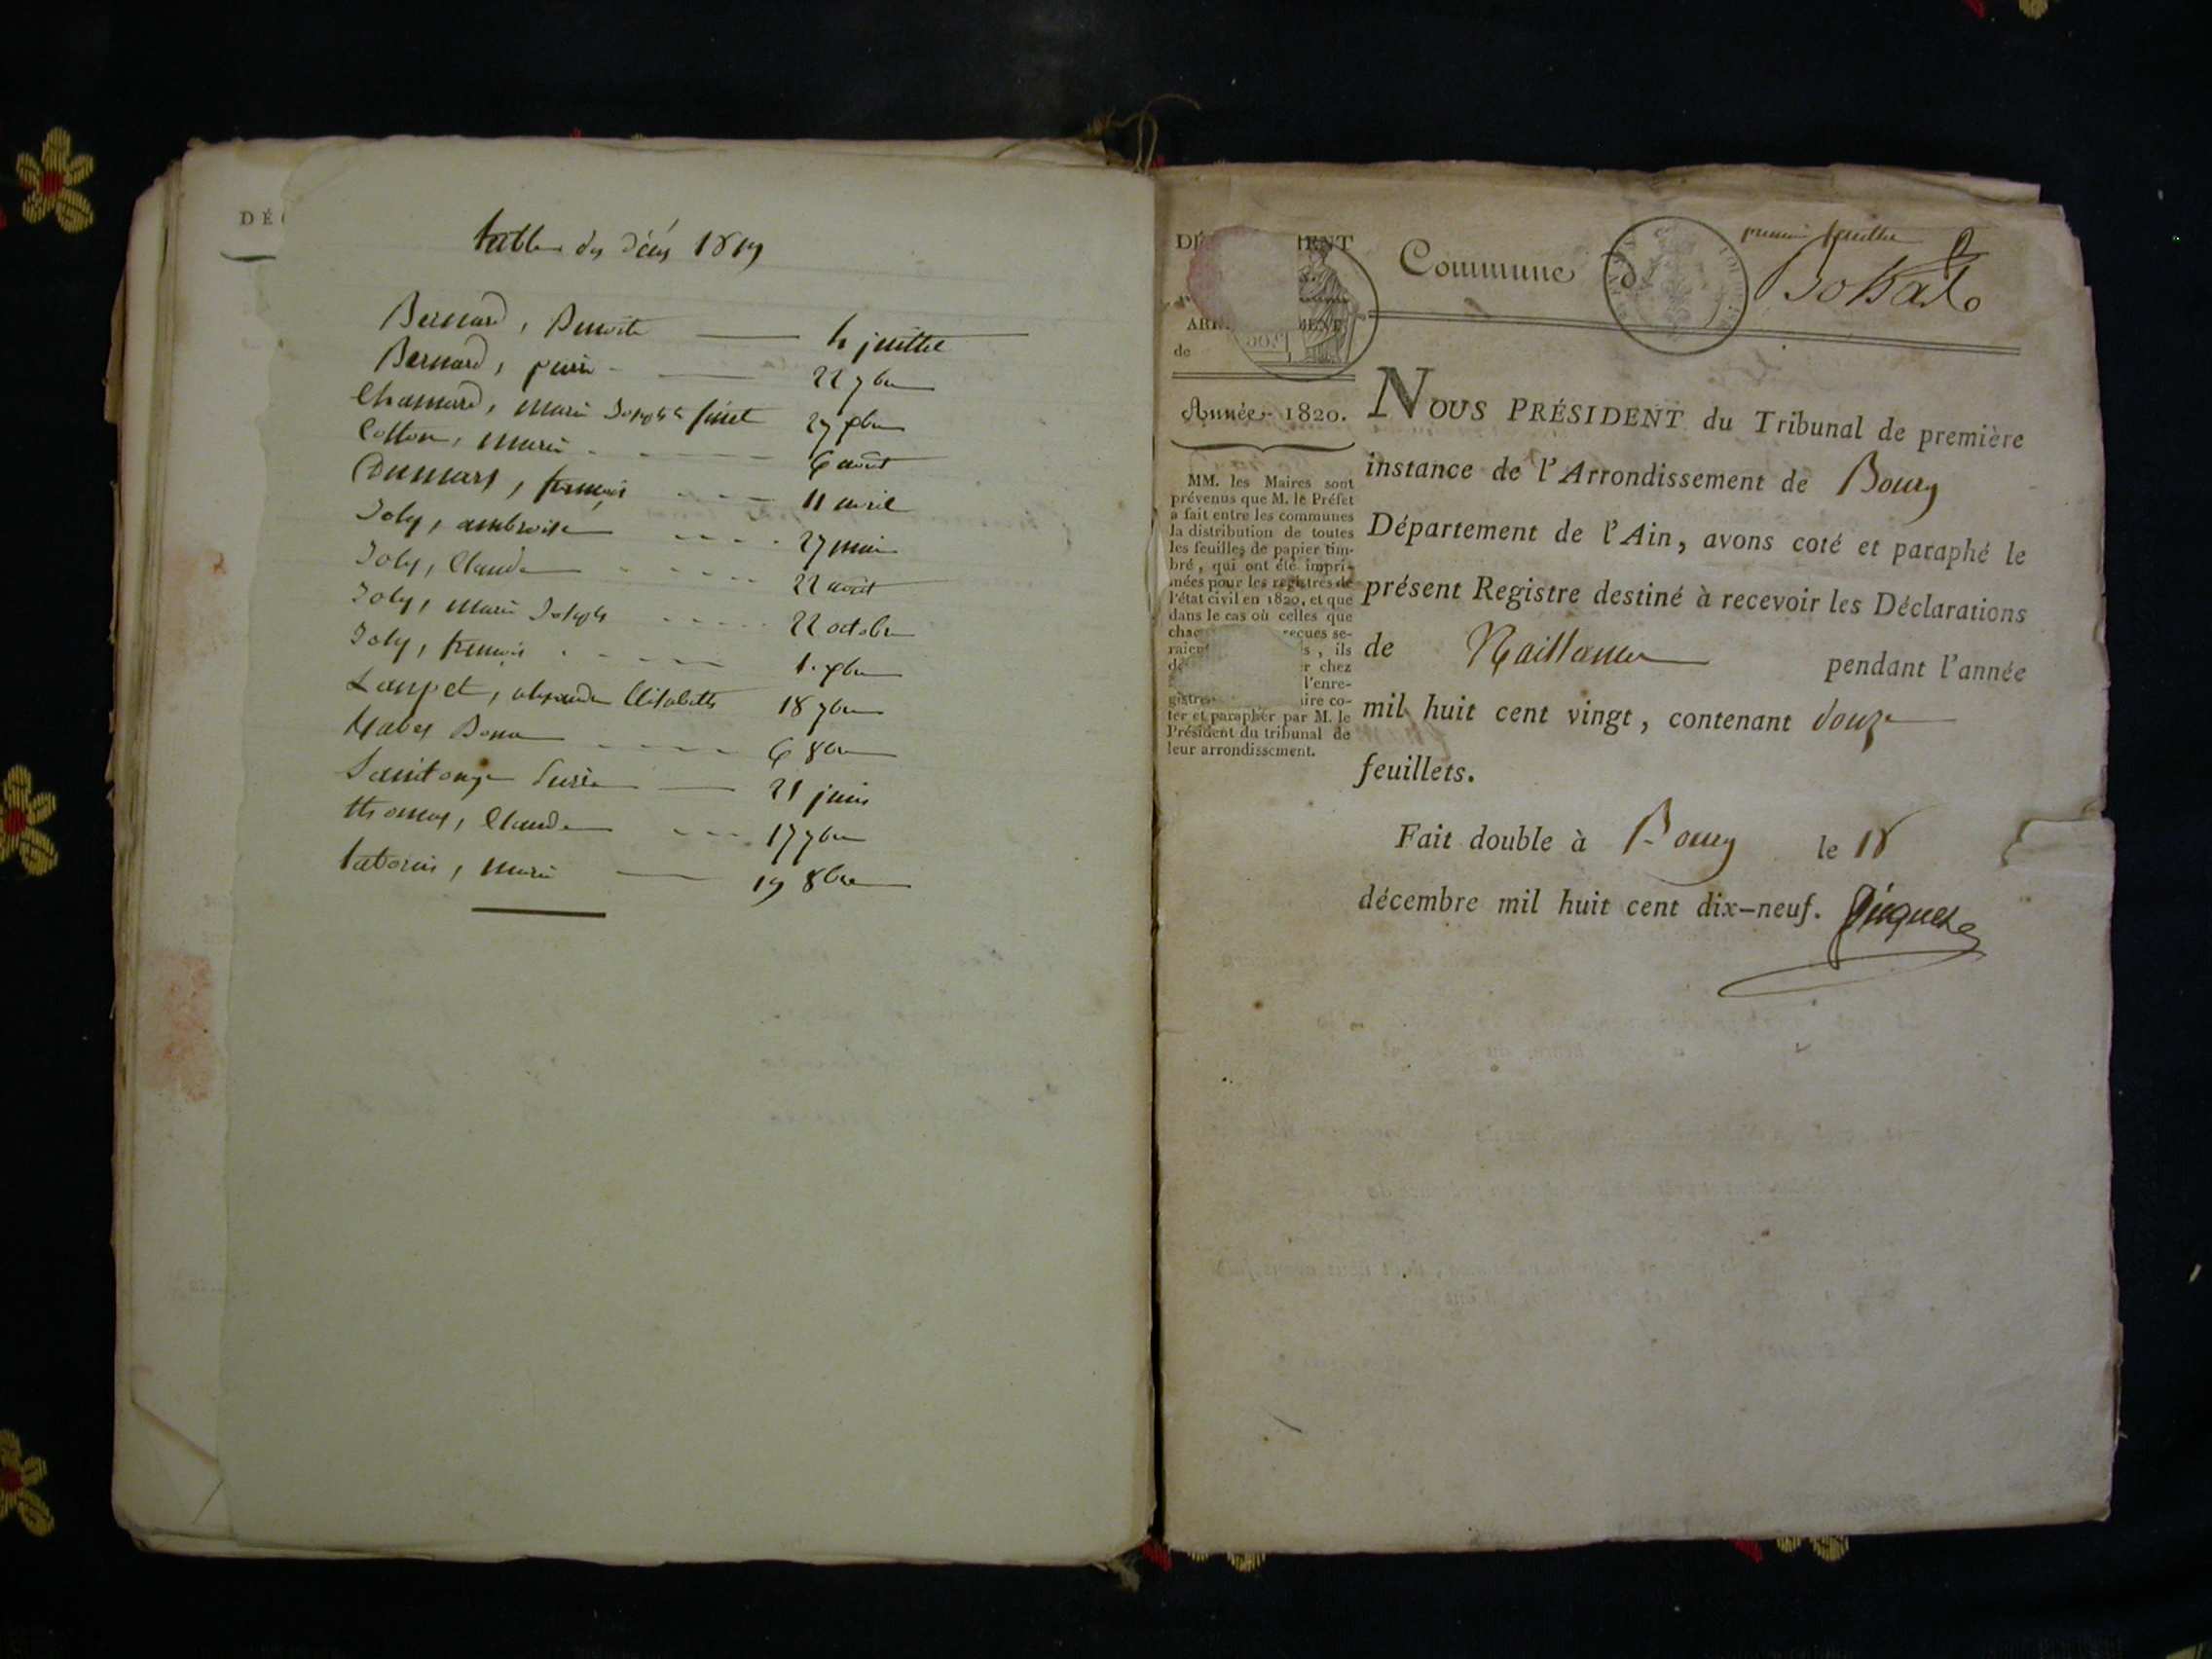 DÉ
table des décés 1819
Bernard, Benoite 4 juillet
Bernard, pierre 22 7bre
Chamard, marie Josephte 27 xbre
Cotton, marie 6 août
Dumars, françois 11 avril
Joly, ambroise 27 mai
Joly, Claude 22 août
Joly, marie Josephe 22 octobre
Joly, françois 1. xbre
18 7bre
6 8bre
Saintonge 21 juin
thomas, Claude 17 7bre
taborin, marie 19 8bre
premier feuillet
Commune d
de
Année 1820.
MM. les Maires sont
prévenus que M. le Préfet
a fait entre les communes
la distribution de toutes
les feuilles de papier tim-
bré, qui ont été impri-
mées pour les registres de
l'état civil en 1820, et que
dans le cas où celles que
reçues se-
raient s, ils
r chez
l'enre-
gistre ire co-
ter et parapher par M. le
Président du tribunal de
leur arrondissement.
NOUS PRÉSIDENT du Tribunal de première
instance de l'Arrondissement de Bourg
Département de l'Ain, avons coté et paraphé le
présent Registre destiné à recevoir les Déclarations
de Naissance pendant l'année
mil huit cent vingt, contenant douze
feuillets.
Fait double à Bourg le 18
décembre mil huit cent dix-neuf.